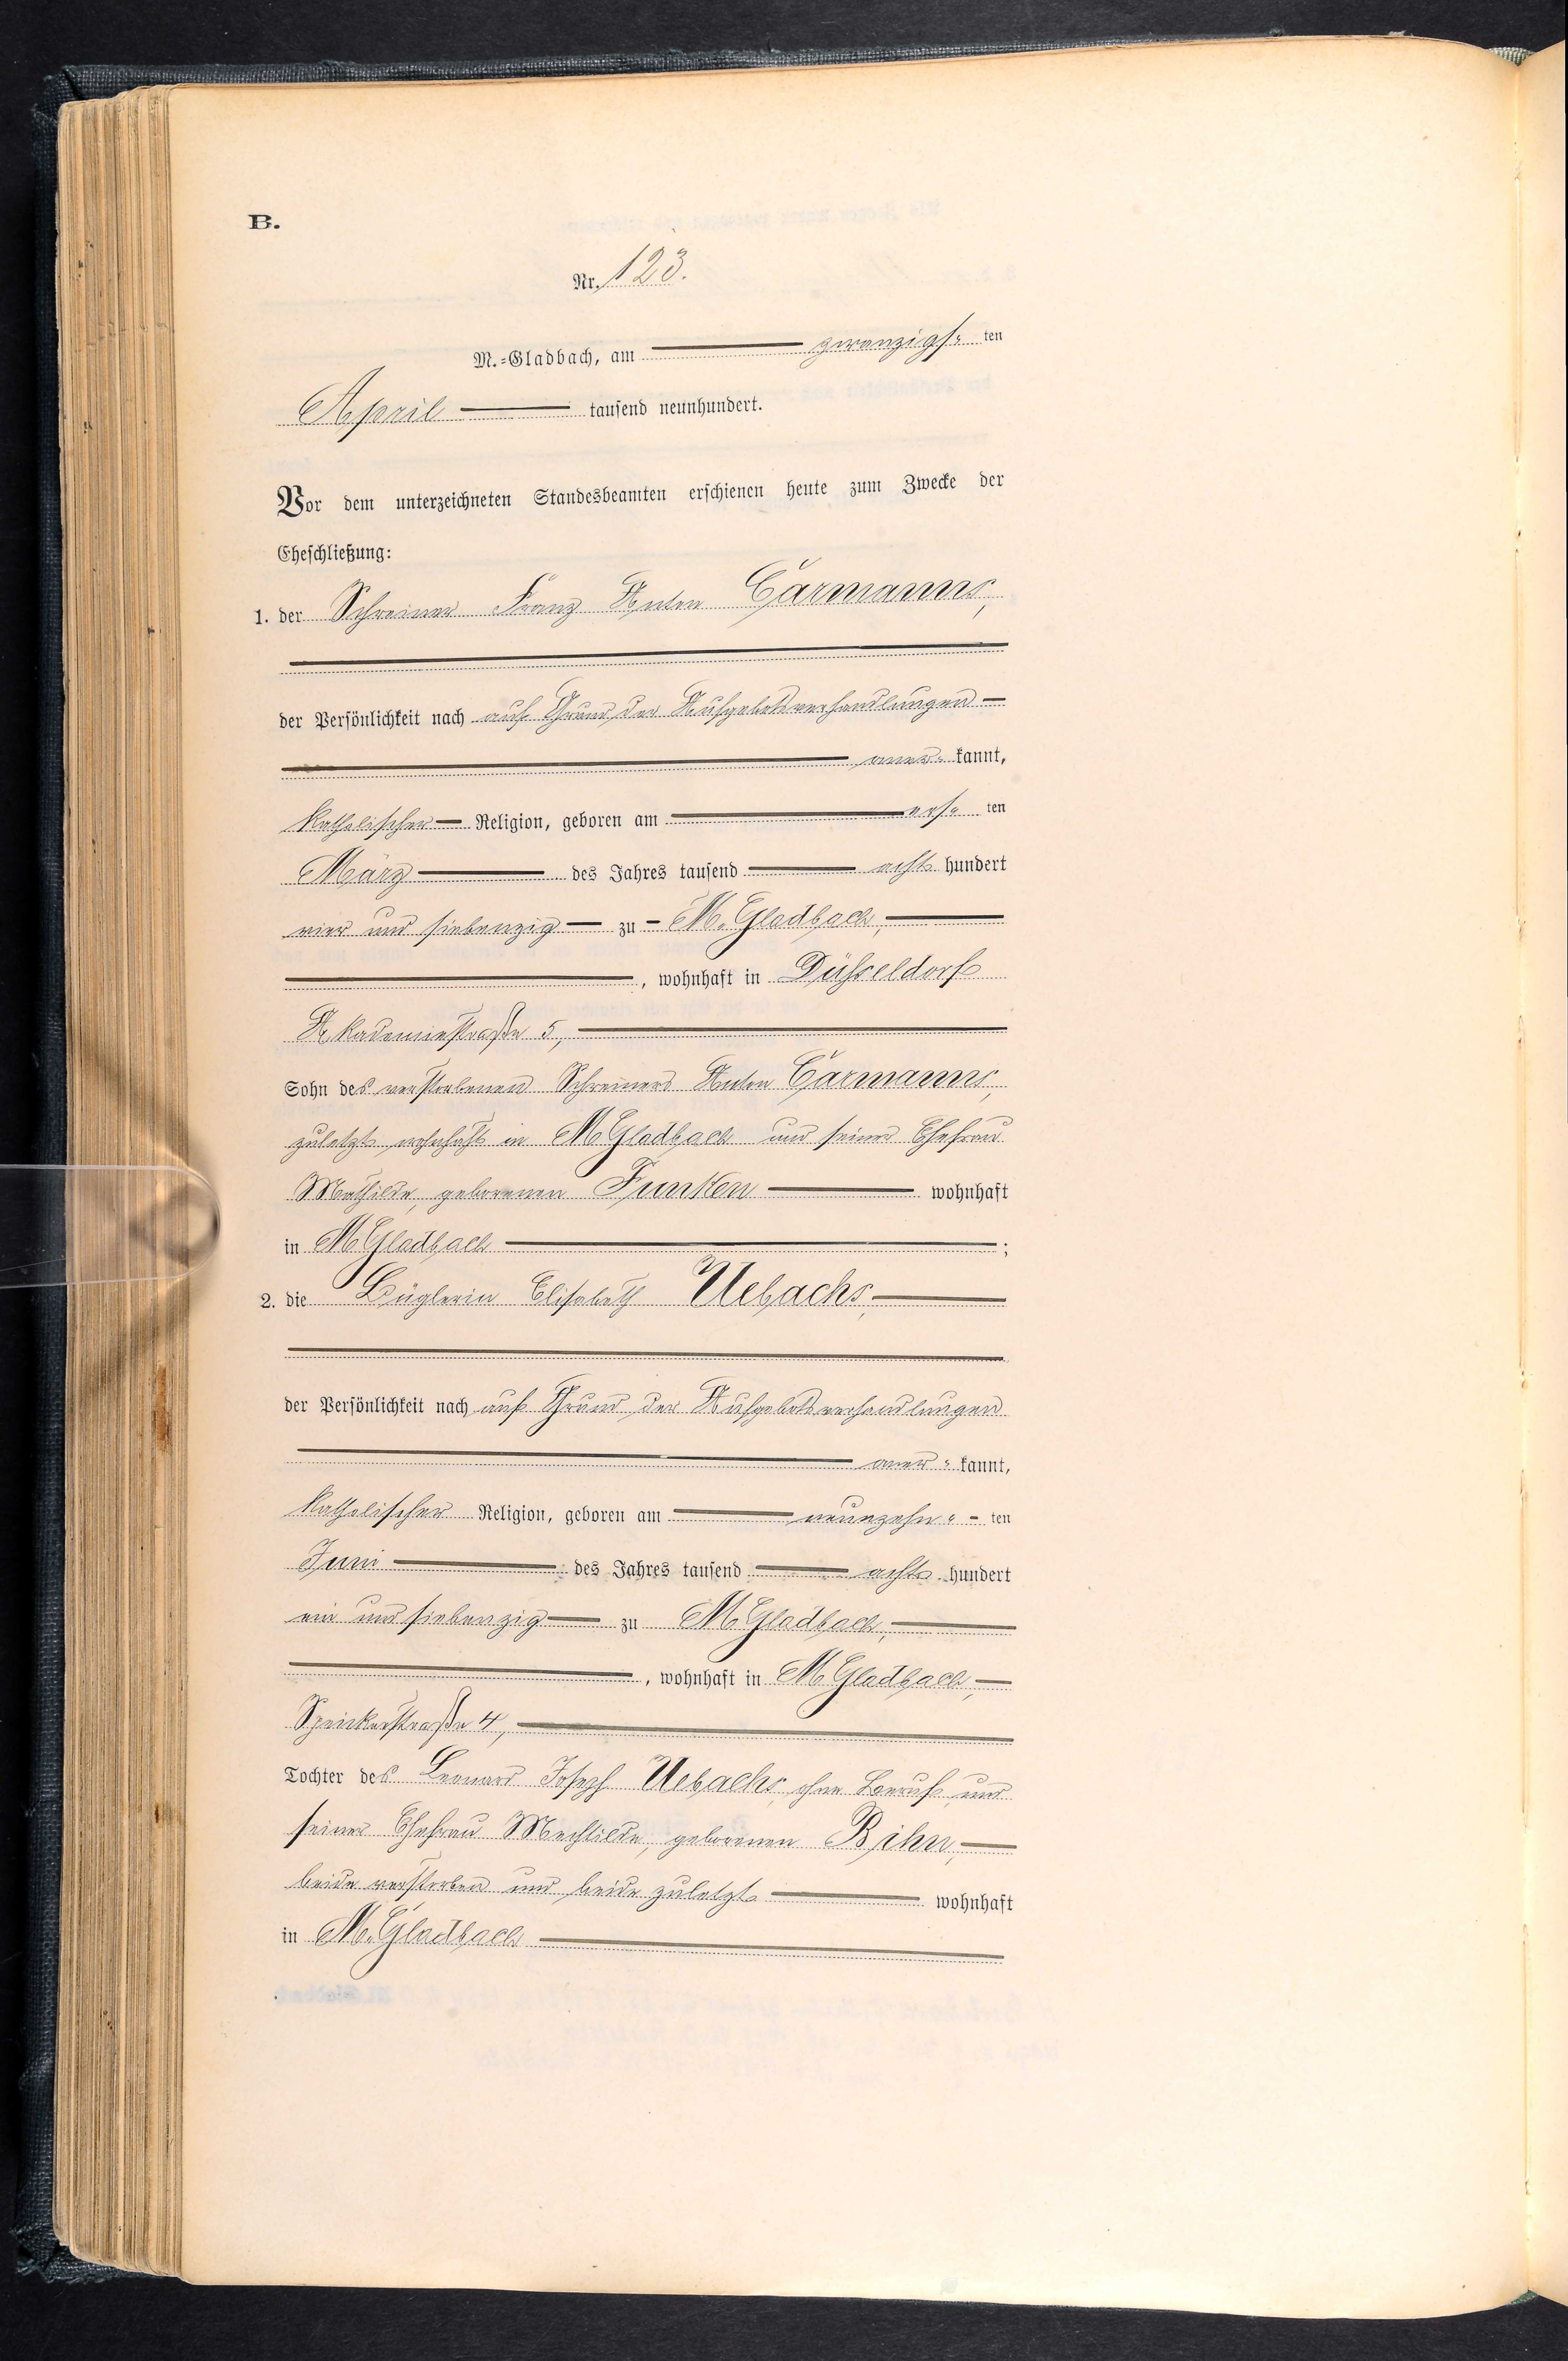 B.
Nr. 123.
M.=Gladbach, am zwanzigs= ten
April tausend neunhundert.
Vor dem unterzeichneten Standesbeamten erschienen heute zum Zwecke der
Eheschließung:
1. der Schreiner Franz Anton Carmanns,
der Persönlichkeit nach auf Grund der Aufgebotsverhandlungen
aner= kannt,
katholischer Religion, geboren am ers= ten
März des Jahres tausend acht hundert
vier und siebenzig zu M. Gladbach,
, wohnhaft in Düsseldorf
Akademiestraße 5,
Sohn des verstorbenen Schreiners Anton Carmanns,
zuletzt wohnhaft in M Gladbach und seiner Ehefrau
Mathilde, geborenen Funken wohnhaft
in M Gladbach ;
2. die Büglerin Elisabeth Uebachs,
der Persönlichkeit nach auf Grund der Aufgebotsverhandlungen
aner= kannt,
katholischer Religion, geboren am neunzehn= ten
Juni des Jahres tausend acht hundert
ein und siebenzig zu M Gladbach,
, wohnhaft in M Gladbach,
Speickerstraße 4,
Tochter des Leonard Joseph Uebachs, ohne Beruf und
seiner Ehefrau Mechtilde, geborenen Bihn,
beide verstorben und beide zuletzt wohnhaft
in M. Gladbach